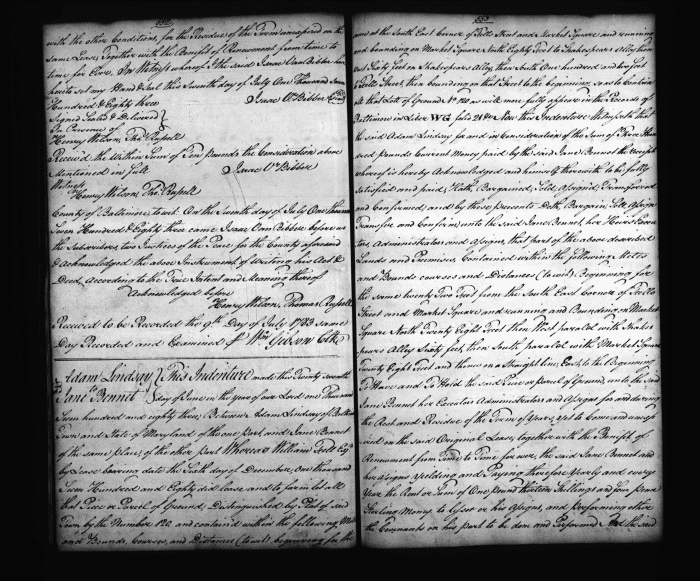 552
with the other Conditions, for the Residue of the Term mentioned in the
same Lease, Together with the Benefit of Renewment from time to
time for Ever. In Witness whereof I the said Isaac Van Bibber have
hereto set my Hand & Seal this Seventh day of July One Thousand Seven
Hundred & Eighty three
Isaac V Bibber (Seal)
Signed Sealed & Delivered
In Presence of
Henry Wilson, Tho Russell
Received the Within Sum of Ten pounds the Consideration above
Mentioned in full
Isaac V Bibber
Witness
Henry Wilson, Tho Russell
County of Baltimore, to wit: On the Seventh day of July One Thousand
Seven Hundred & Eighty three came Isaac Van Bibber before us
the Subscribers, two Justices of the Peace for the County aforesaid
& Acknowledged the above Instrument of Writing his Act &
Deed, According to the True Intent and Meaning thereof
Acknowledged before
Henry Wilson, Thomas Russell
Received to be Recorded the 9th Day of July 1783 same
Day Recorded and Examined Wm Gibson Clk
Adam Lindsay
to
Jane Bennet
This Indenture made this Twenty seventh
day of June in the Year of our Lord one Thousand
Seven hundred and eighty three, Between Adam Lindsay of Baltimore
Town and State of Maryland of the one part, and Jane Bennet
of the same place, of the other part Whereas William Fell Esqr
by Lease bearing date the Sixth day of December, one thousand
Seven Hundred and Eighty did lease, and to farm let all
that Piece or Parcel of Ground, Distinguished by Plat of said
Town by the Number 120 and contain'd within the following Metes
and Bounds, Courses, and Distances (towit) beginning for the
553
same at the South East Corner of Fells Street and Market Square and running
and bounding on Market Square North Eighty Feet to Shakespears Alley, then
Sixty Feet on Shakespears Alley, then South One hundred and two feet
to Fells Street, then bounding on that Street to the beginning, so as to Contain
all that Lott of Ground No 120 as will more fully appear in the Records of
Baltimore in Liber WG folio Now this Indenture Witnesseth that
the said Adam Lindsay for and in Consideration of the Sum of Three Hun
dred pounds Current Money paid by the said Jane Bennet the receipt
whereof is hereby Acknowledged and himself therewith to be fully
satisfied and paid, Hath Bargained, Sold, Assigned, Transferred
and Confirmed, and by these presents Doth Bargain, Sell, Assign
Transfer and Confirm, unto the said Jane Bennet, her Heirs Execu
tors, Administrators and Assigns, that part of the above described
Lands and Premises, Contained within the following Metes
and Bounds courses and Distances (to wit) Beginning for
the same twenty Two Feet from the South East Corner of Fells
Street and Market Square and running and Bounding on Market
Square North Twenty Eight Feet then West paralel with Shakes
pears Alley Sixty feet, then South paralel with Market Square
Twenty Eight Feet and thence on a Straight line East, to the Beginning
To Have and To Hold the said Piece or parcel of Ground unto the said
Jane Bennet her Executors Administrators and Assigns for and during
the Rest and Residue of the Term of Years, yet to Come and unexpi
red in the said Original Lease, together with the Benefit of
Renewment from Time to Time for ever, the said Jane Bennet and
her Assigns yielding and Paying therefor Yearly and every
Year the Rent or Sum of One Pound thirteen Shillings and four pence
Sterling Money to Lessor or his Assigns, and performing others
the Covenants on his part to be done and Performed And the said